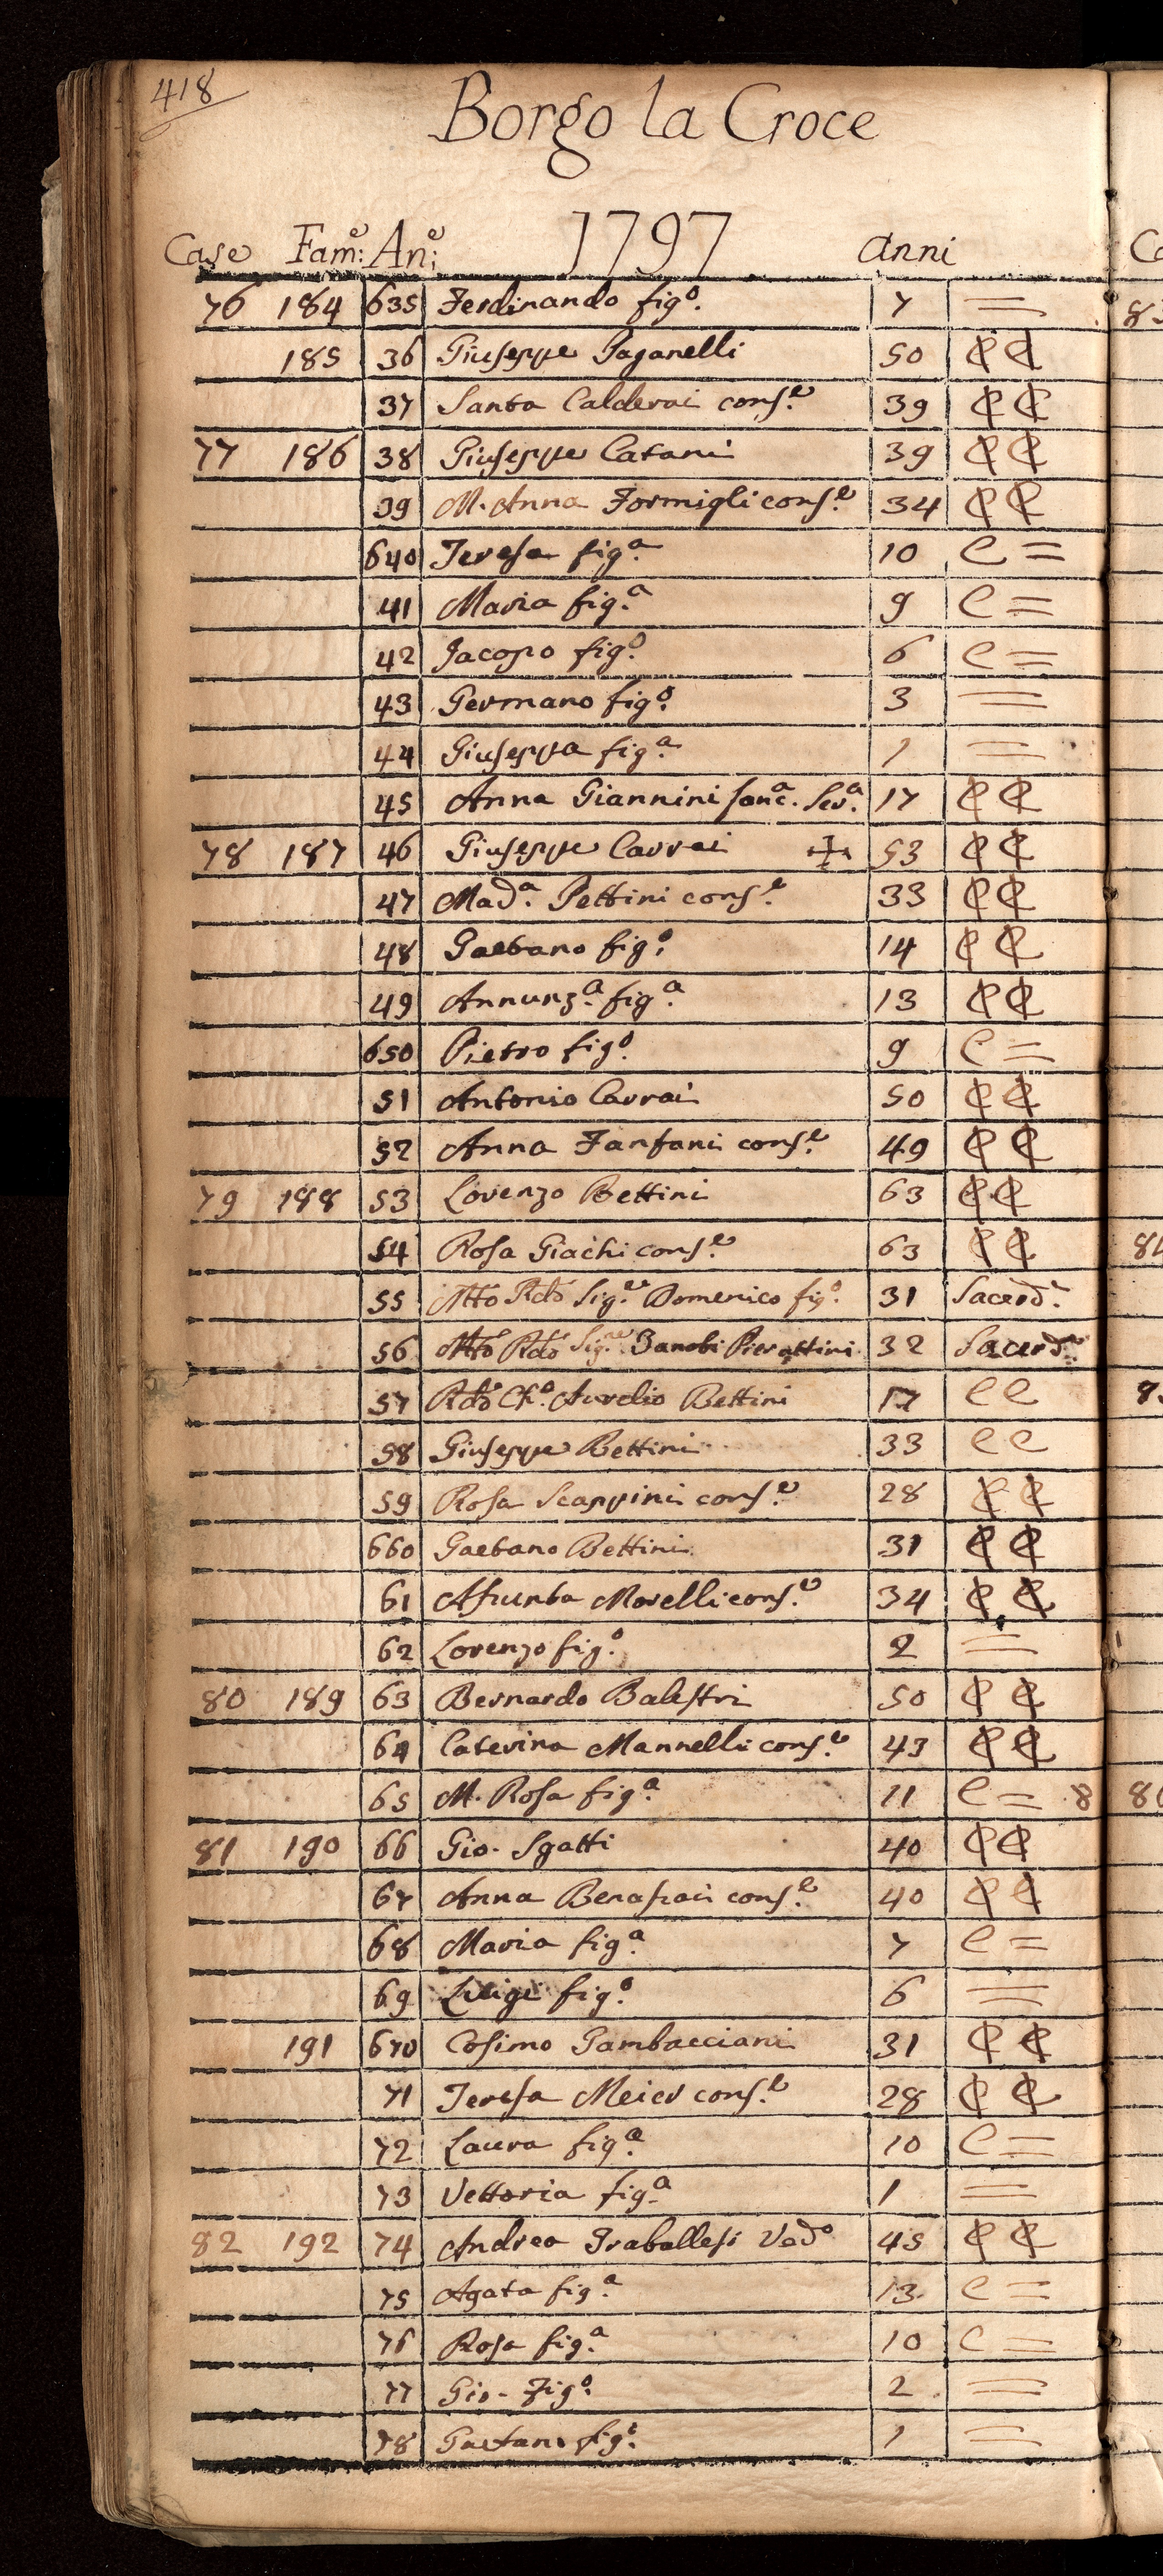 418
Borgo la Croce
Case Fam:e An:e 1797 anni
76 184 635 Ferdinando figo. 7 =
185 36 Giuseppe Paganelli 50 ₵ ₵
37 Santa Calderai conse. 39 ₵ ₵
77 186 38 Giuseppe Catani 39 ₵ ₵
39 M. Anna Formigli conse. 34 ₵ ₵
640 Teresa figa. 10 C =
41 Maria figa. 9 C =
42 Jacopo figo. 6 C =
43 Germano figo. 3 =
44 Giuseppa figa. 1 =
45 Anna Giannini Sera. 17 ₵ ₵
78 187 46 Giuseppe Carrai + 53 ₵ ₵
47 Mada. Pettini conse. 33 ₵ ₵
48 Gaetano figo. 14 ₵ ₵
49 Annunza. figa. 13 ₵ ₵
650 Pietro figo. 9 C =
51 Antonio Carrai 50 ₵ ₵
52 Anna Fanfani conse. 49 ₵ ₵
79 188 53 Lorenzo Bettini 63 ₵ ₵
54 Rosa Giachi conse. 63 ₵ ₵
55 Mto Rdo Sigre. Domenico figo. 31 Sacerde.
56 Mto Rdo Sigre. Zanobi Pierattini 32 Sacerde.
57 Rdo Cho. Aurelio Bettini 17 C C
58 Giuseppe Bettini 33 C C
59 Rosa Scappini conse. 28 ₵ ₵
660 Gaetano Bettini 31 ₵ ₵
61 Assunta Morelli conse. 34 ₵ ₵
62 Lorenzo figo. 2 =
80 189 63 Bernardo Balestri 50 ₵ ₵
64 Caterina Mannelli conse. 43 ₵ ₵
65 M. Rosa figa. 11 C = 8
81 190 66 Gio. Sgatti 40 ₵ ₵
67 Anna conse. 40 ₵ ₵
68 Maria figa. 7 C =
69 Luigi figo. 6 =
191 670 Cosimo Gambacciani 31 ₵ ₵
71 Teresa Meier conse. 28 ₵ ₵
72 Laura figa. 10 C =
73 Vettoria figa. 1 =
82 192 74 Andrea Traballesi Vedo 45 ₵ ₵
75 Agata figa. 13 C =
76 Rosa figa. 10 C =
77 Gio. Figo. 2 =
78 Gaetano figo. 1 =